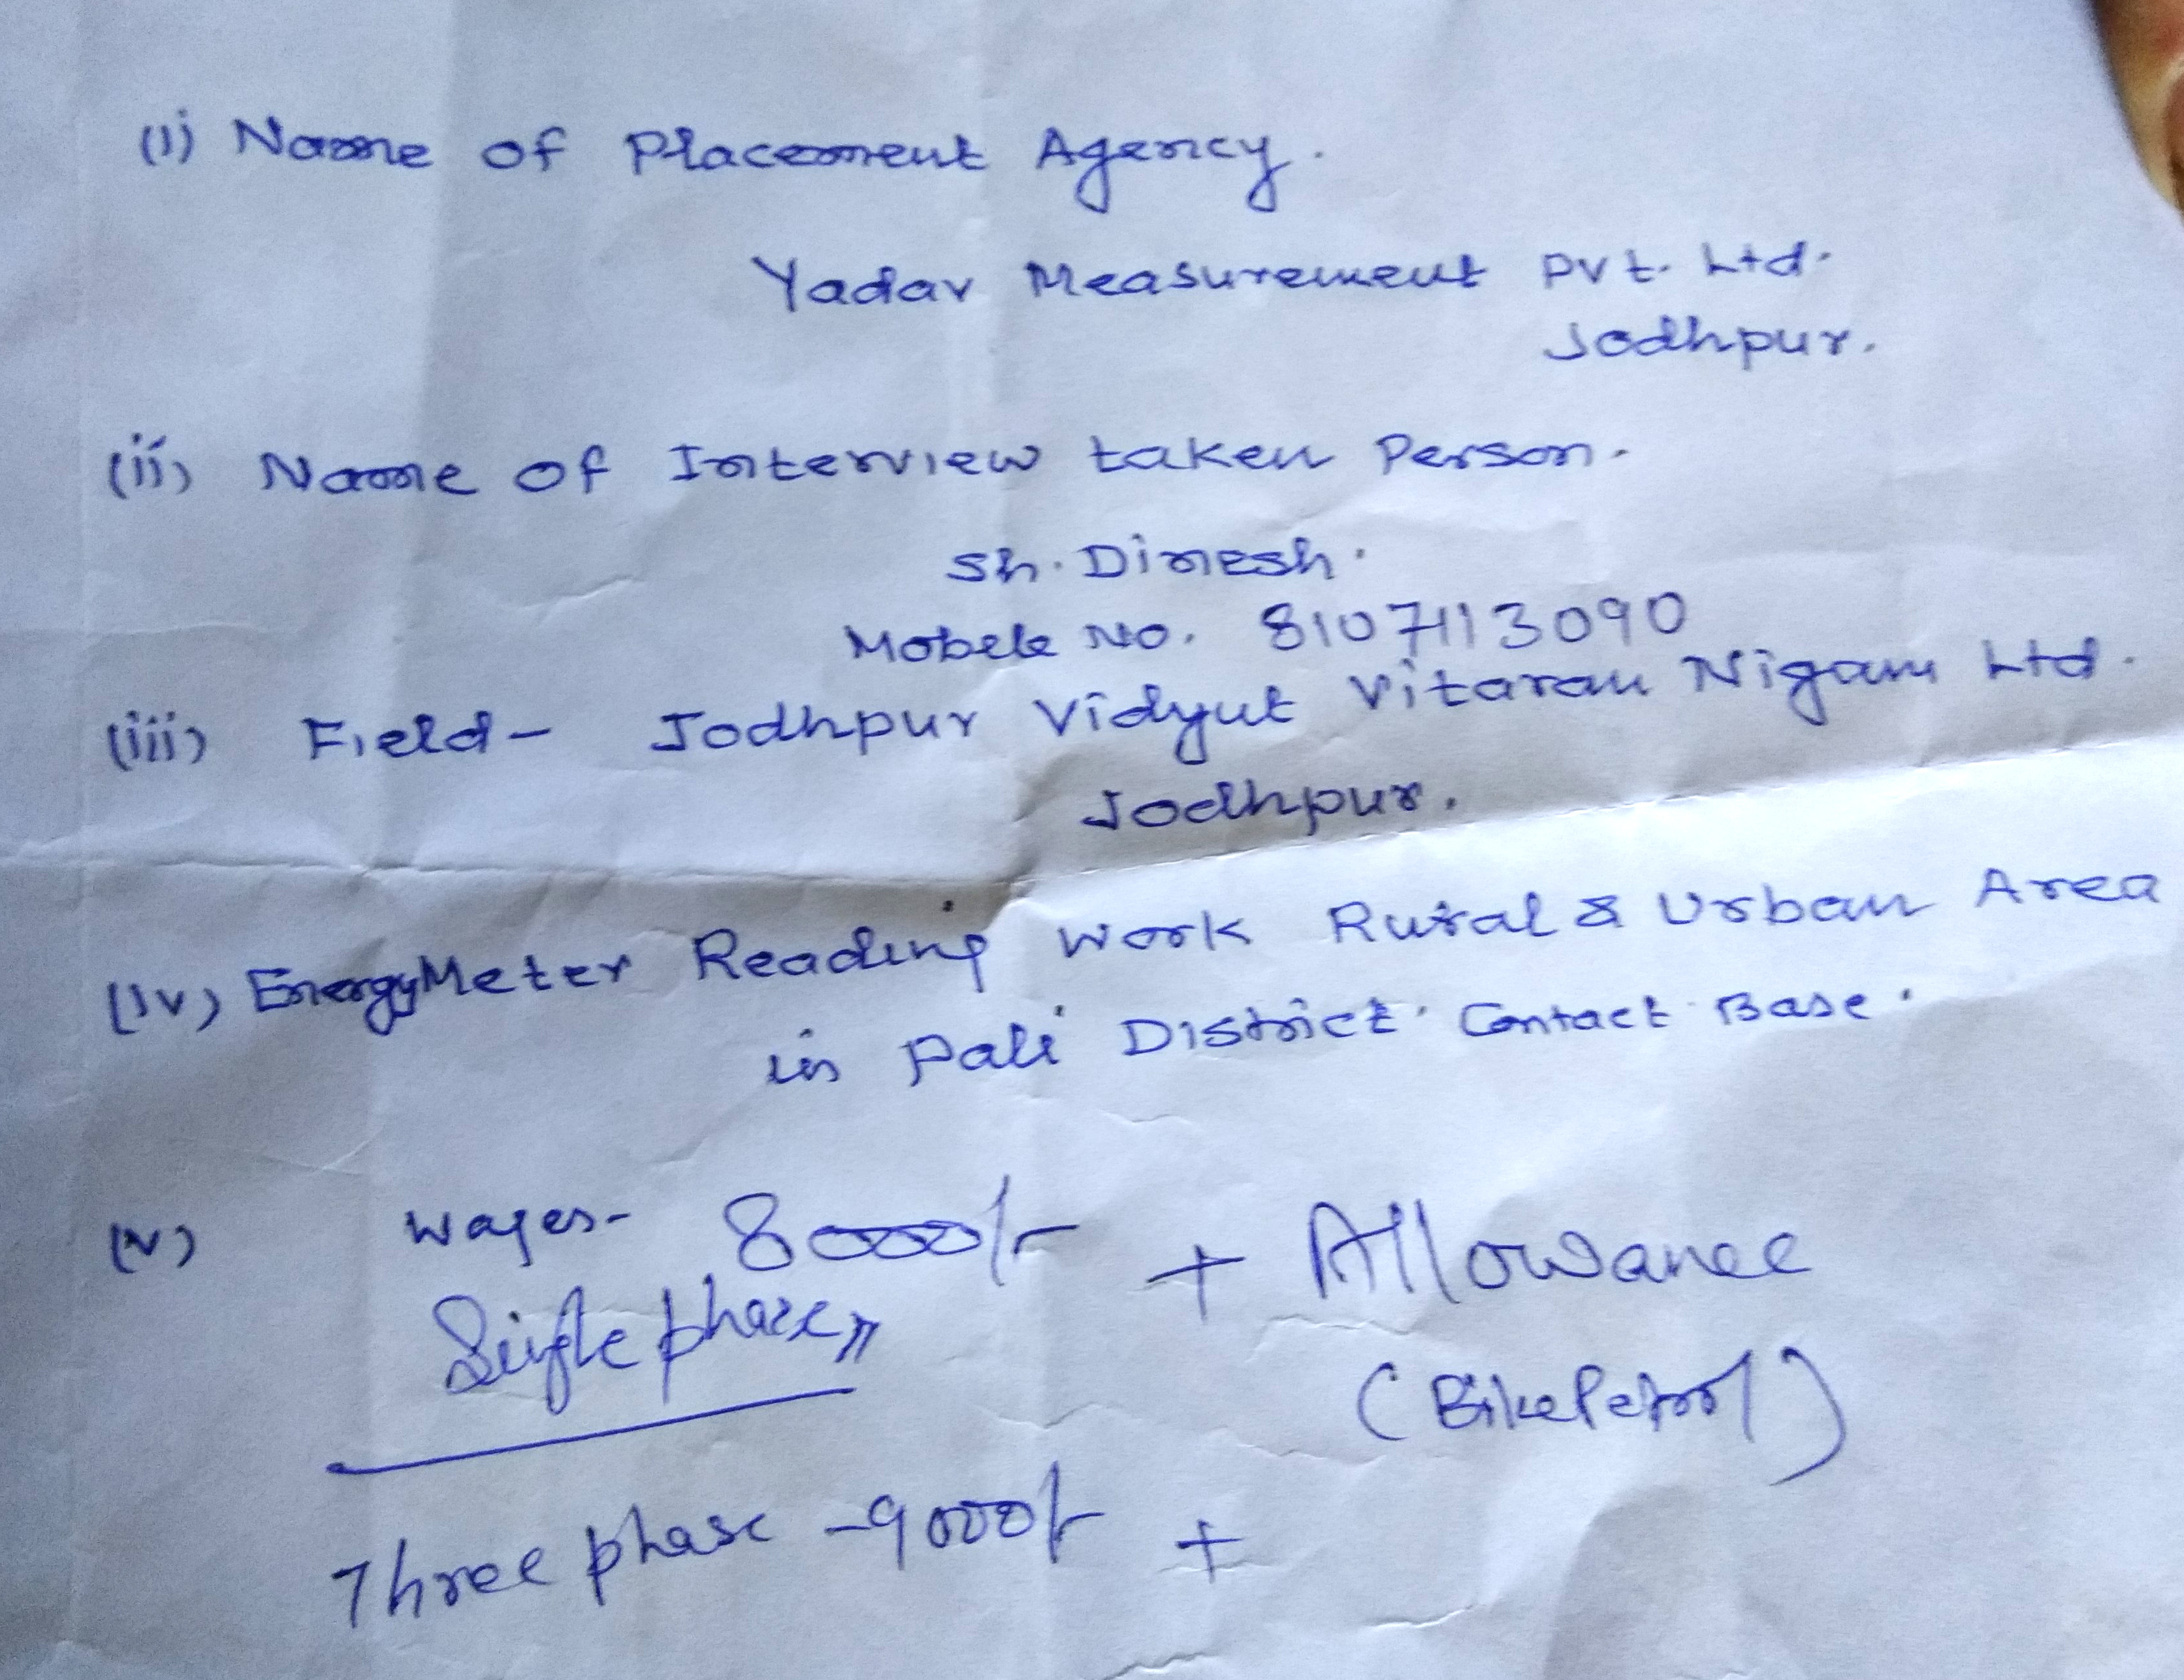 (i) Name of Placement Agency.
Yadav Measurement Pvt. Ltd.
Jodhpur.
(ii) Name of Interview taken Person.
Sh. Dinesh.
Mobele No. 8107113090
(iii) Field - Jodhpur Vidyut Vitaran Nigam Ltd.
Jodhpur.
(iv) Energy Meter Reading Work Rural & Urban Area
in Pali District. Contact Base.
(v) Wages - 8000/- + Allowance
Single phase
(Bike Petrol)
Three phase - 9000/- +